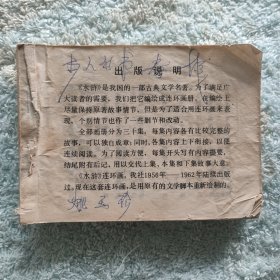 出版说明
《水浒》是我国的一部古典文学名著。为了满足广
大读者的需要，我们把它编绘成连环画册。在编绘上
尽量保持原著故事情节，但是为了适合用连环画来表
现，个别情节也作了一些删节和改动。
全部画册分为三十集，每集内容各有比较完整的
故事，可以独自成章；同时，各集内容上下衔接，以便
连续阅读。为了阅读方便，每集开头写有内容提要，
结尾附有后记，用以交代上集、本集和下集故事大意。
《水浒》连环画，我社1956年—1962年陆续出版
过。现在这套连环画，是用原有的文学脚本重新绘制的。